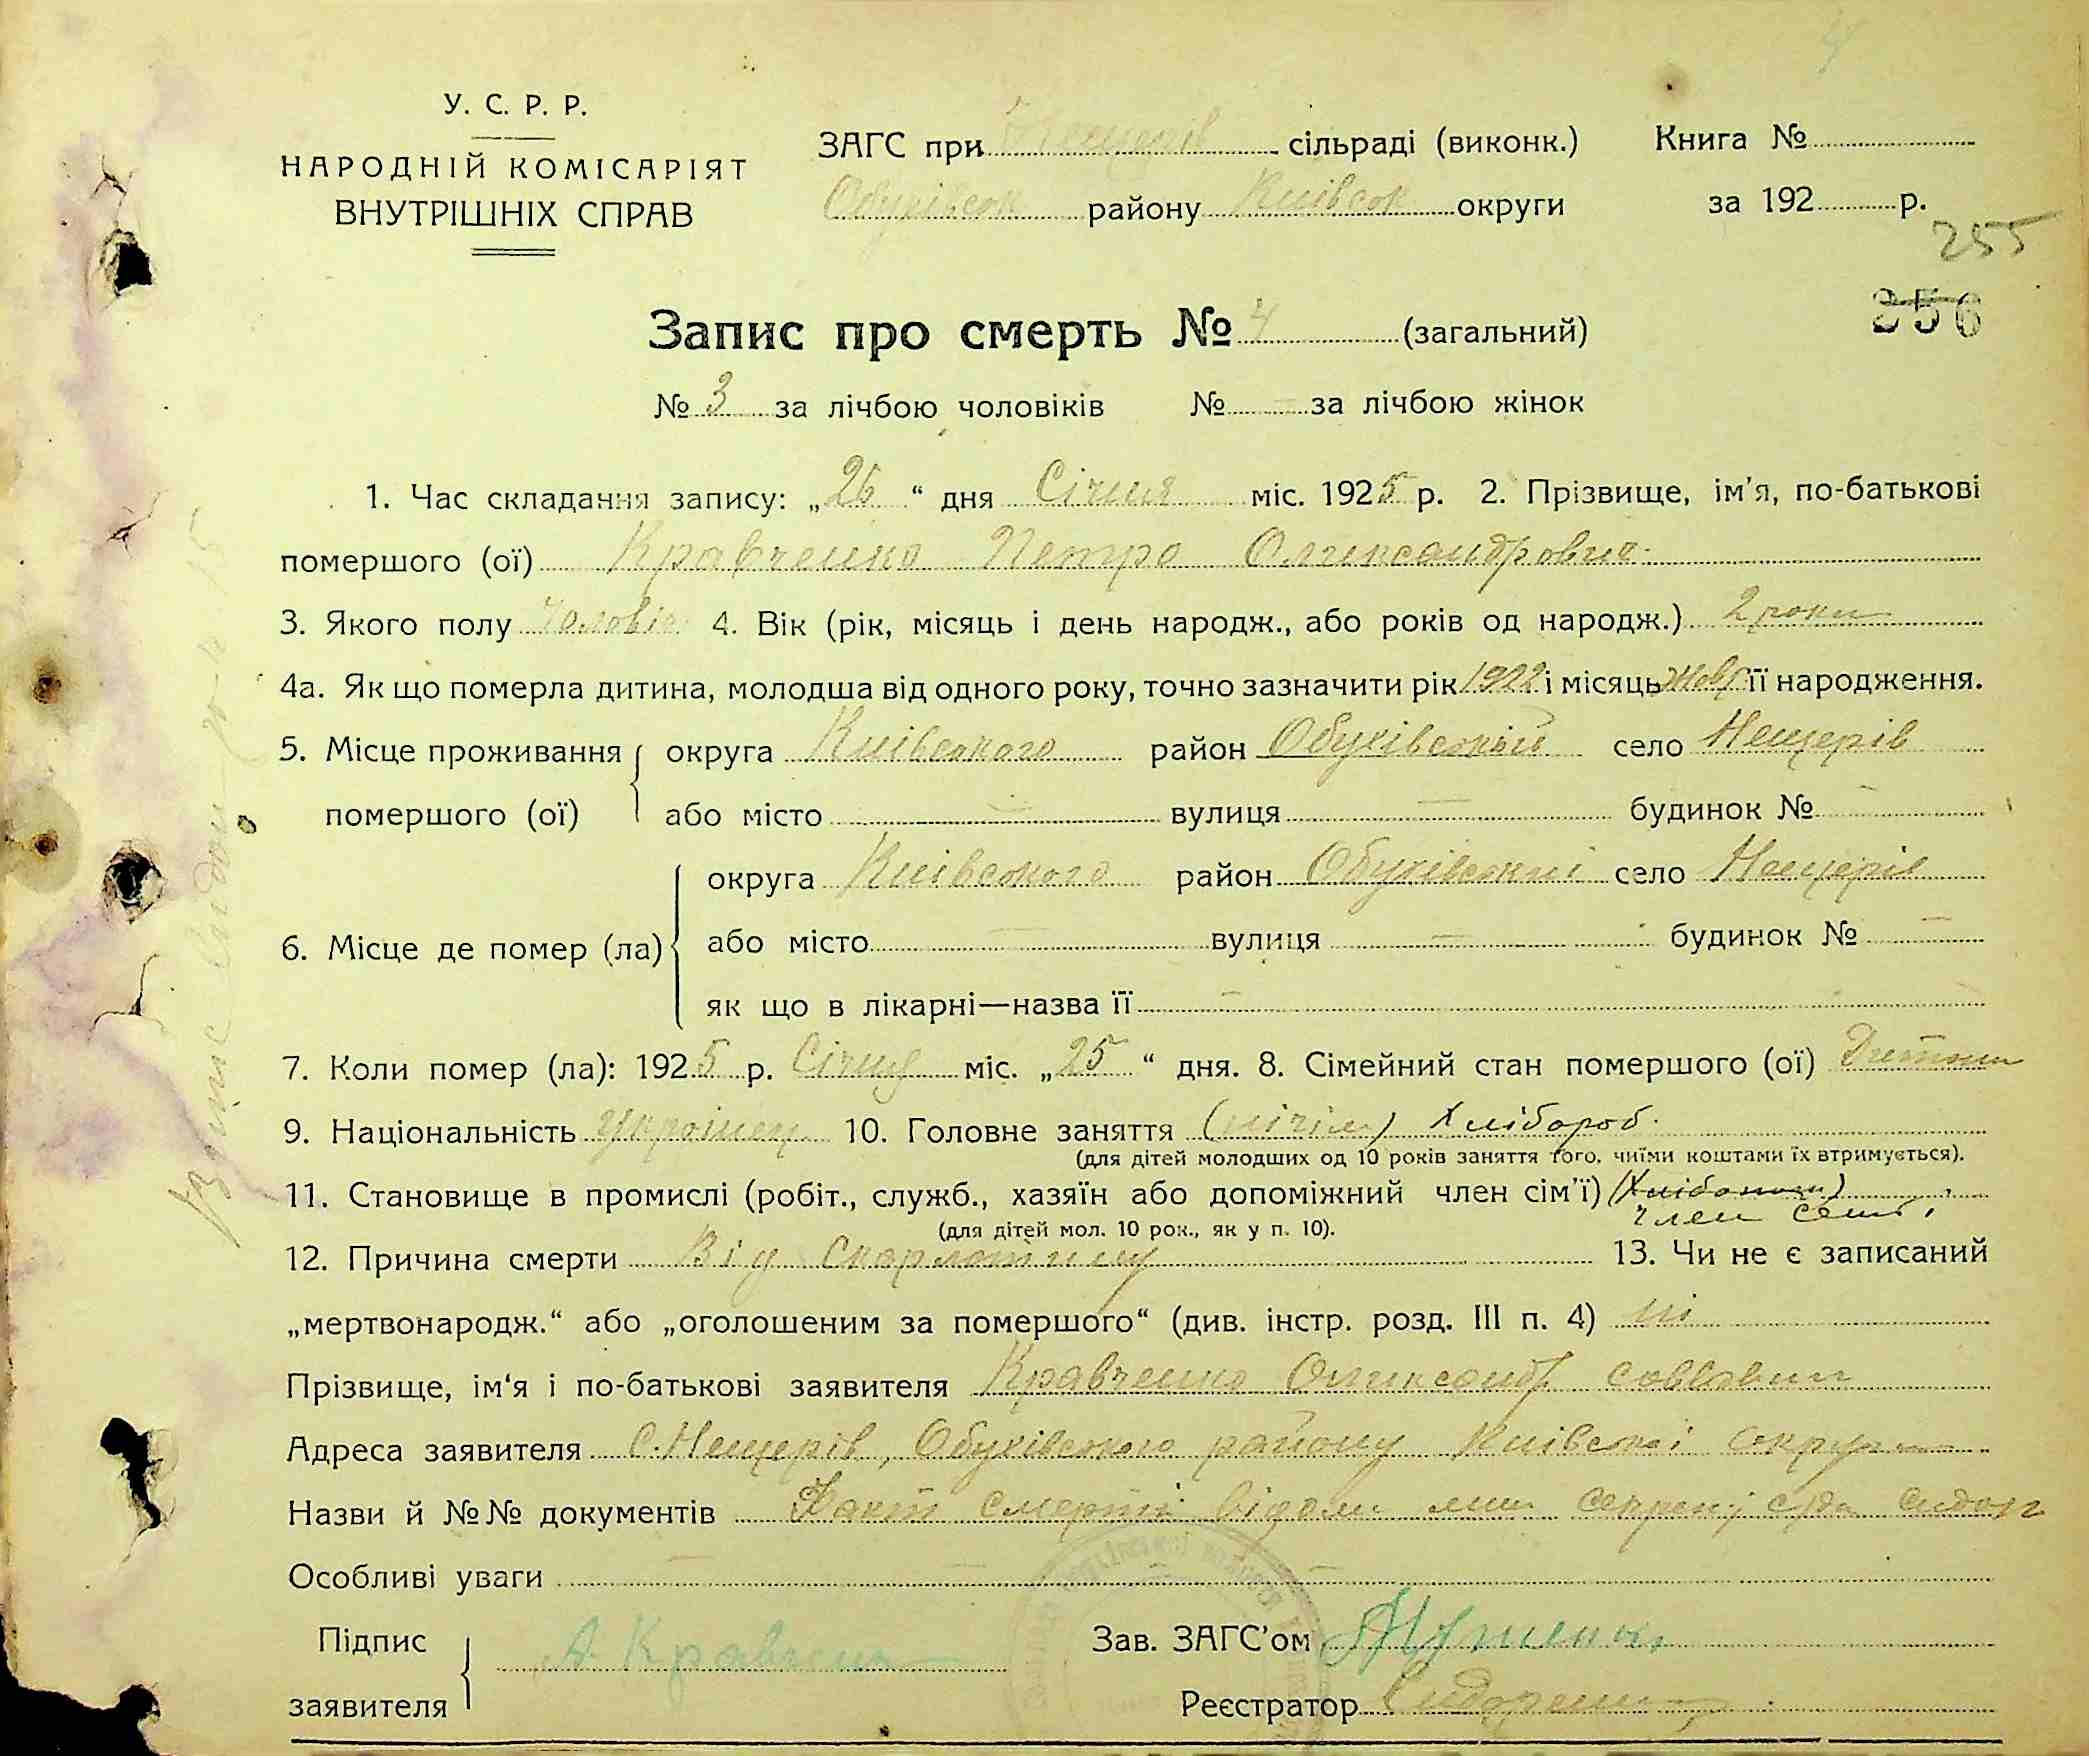 У. С. Р. Р.
НАРОДНІЙ КОМІСАРІЯТ
ВНУТРІШНІХ СПРАВ
ЗАГС при Нещерів сільраді (виконк.)
Обухівськ району Київськ округи
Книга №
за 192 р.
255
256
Запис про смерть № 4 (загальний)
№ 3 за лічбою чоловіків № — за лічбою жінок
1. Час складання запису: „26“ дня Січня міс. 1925 р. 2. Прізвище, ім'я, по-батькові
помершого (ої) Кравченко Петро Олександрович
3. Якого полу чоловіч 4. Вік (рік, місяць і день народж., або років од народж.) 2 роки
4а. Як що померла дитина, молодша від одного року, точно зазначити рік 1922 і місяць Жовт її народження.
5. Місце проживання округа Київського район Обухівський село Нещерів
помершого (ої) або місто — вулиця — будинок № —
6. Місце де помер (ла) округа Київського район Обухівський село Нещерів
або місто — вулиця — будинок № —
як що в лікарні—назва її —
7. Коли помер (ла): 1925 р. Січня міс. „25“ дня. 8. Сімейний стан помершого (ої) Дитина
9. Національність Українец 10. Головне заняття Хлібороб.
(для дітей молодших од 10 років заняття того, чиїми коштами їх втримується).
11. Становище в промислі (робіт., служб., хазяїн або допоміжний член сім'ї)
член семї
(для дітей мол. 10 рок., як у п. 10).
12. Причина смерти Від скарлатини 13. Чи не є записаний
„мертвонародж.“ або „оголошеним за помершого“ (див. інстр. розд. III п. 4) ні
Прізвище, ім'я і по-батькові заявителя Кравченко Олександр Саввович
Адреса заявителя с. Нещерів, Обухівського району Київської округи
Назви й №№ документів Факт смерті відом
Особливі уваги —
Підпис
заявителя А Кравченко
Зав. ЗАГС'ом
Реєстратор Сидоренко